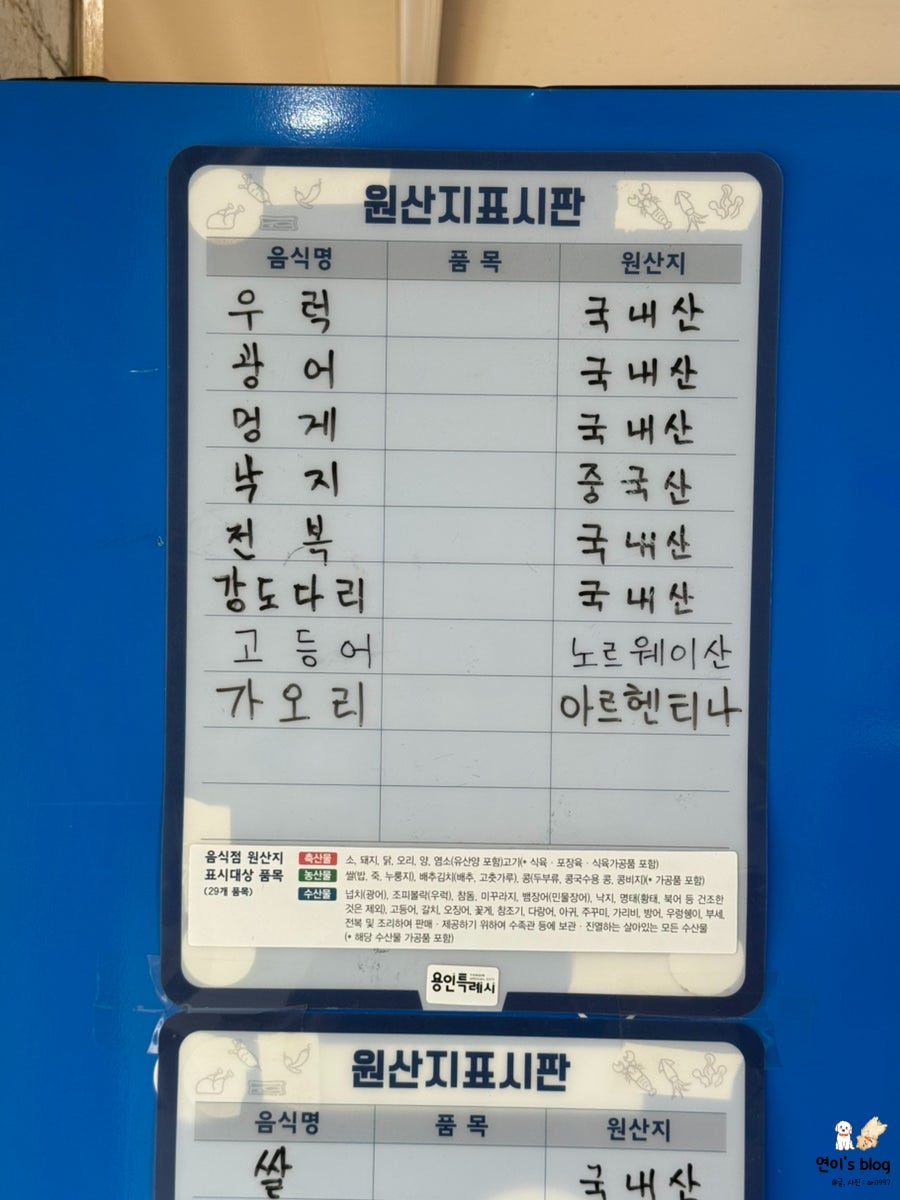 원산지표시판
음식명 품목 원산지
우럭 국내산
광어 국내산
멍게 국내산
낙지 중국산
전복 국내산
강도다리 국내산
고등어 노르웨이산
가오리 아르헨티나
음식점 원산지 표시대상 품목 (29개 품목)
축산물 소, 돼지, 닭, 오리, 양, 염소(유산양 포함)고기(* 식육 · 포장육 · 식육가공품 포함)
농산물 쌀(밥, 죽, 누룽지), 배추김치(배추, 고춧가루), 콩(두부류, 콩국수용 콩, 콩비지)(* 가공품 포함)
수산물 넙치(광어), 조피볼락(우럭), 참돔, 미꾸라지, 뱀장어(민물장어), 낙지, 명태(황태, 북어 등 건조한
것은 제외), 고등어, 갈치, 오징어, 꽃게, 참조기, 다랑어, 아귀, 주꾸미, 가리비, 방어, 우렁쉥이, 부세,
전복 및 조리하여 판매 · 제공하기 위하여 수족관 등에 보관 · 진열하는 살아있는 모든 수산물
(* 해당 수산물 가공품 포함)
용인특례시
원산지표시판
음식명 품목 원산지
쌀 국내산
연이's blog